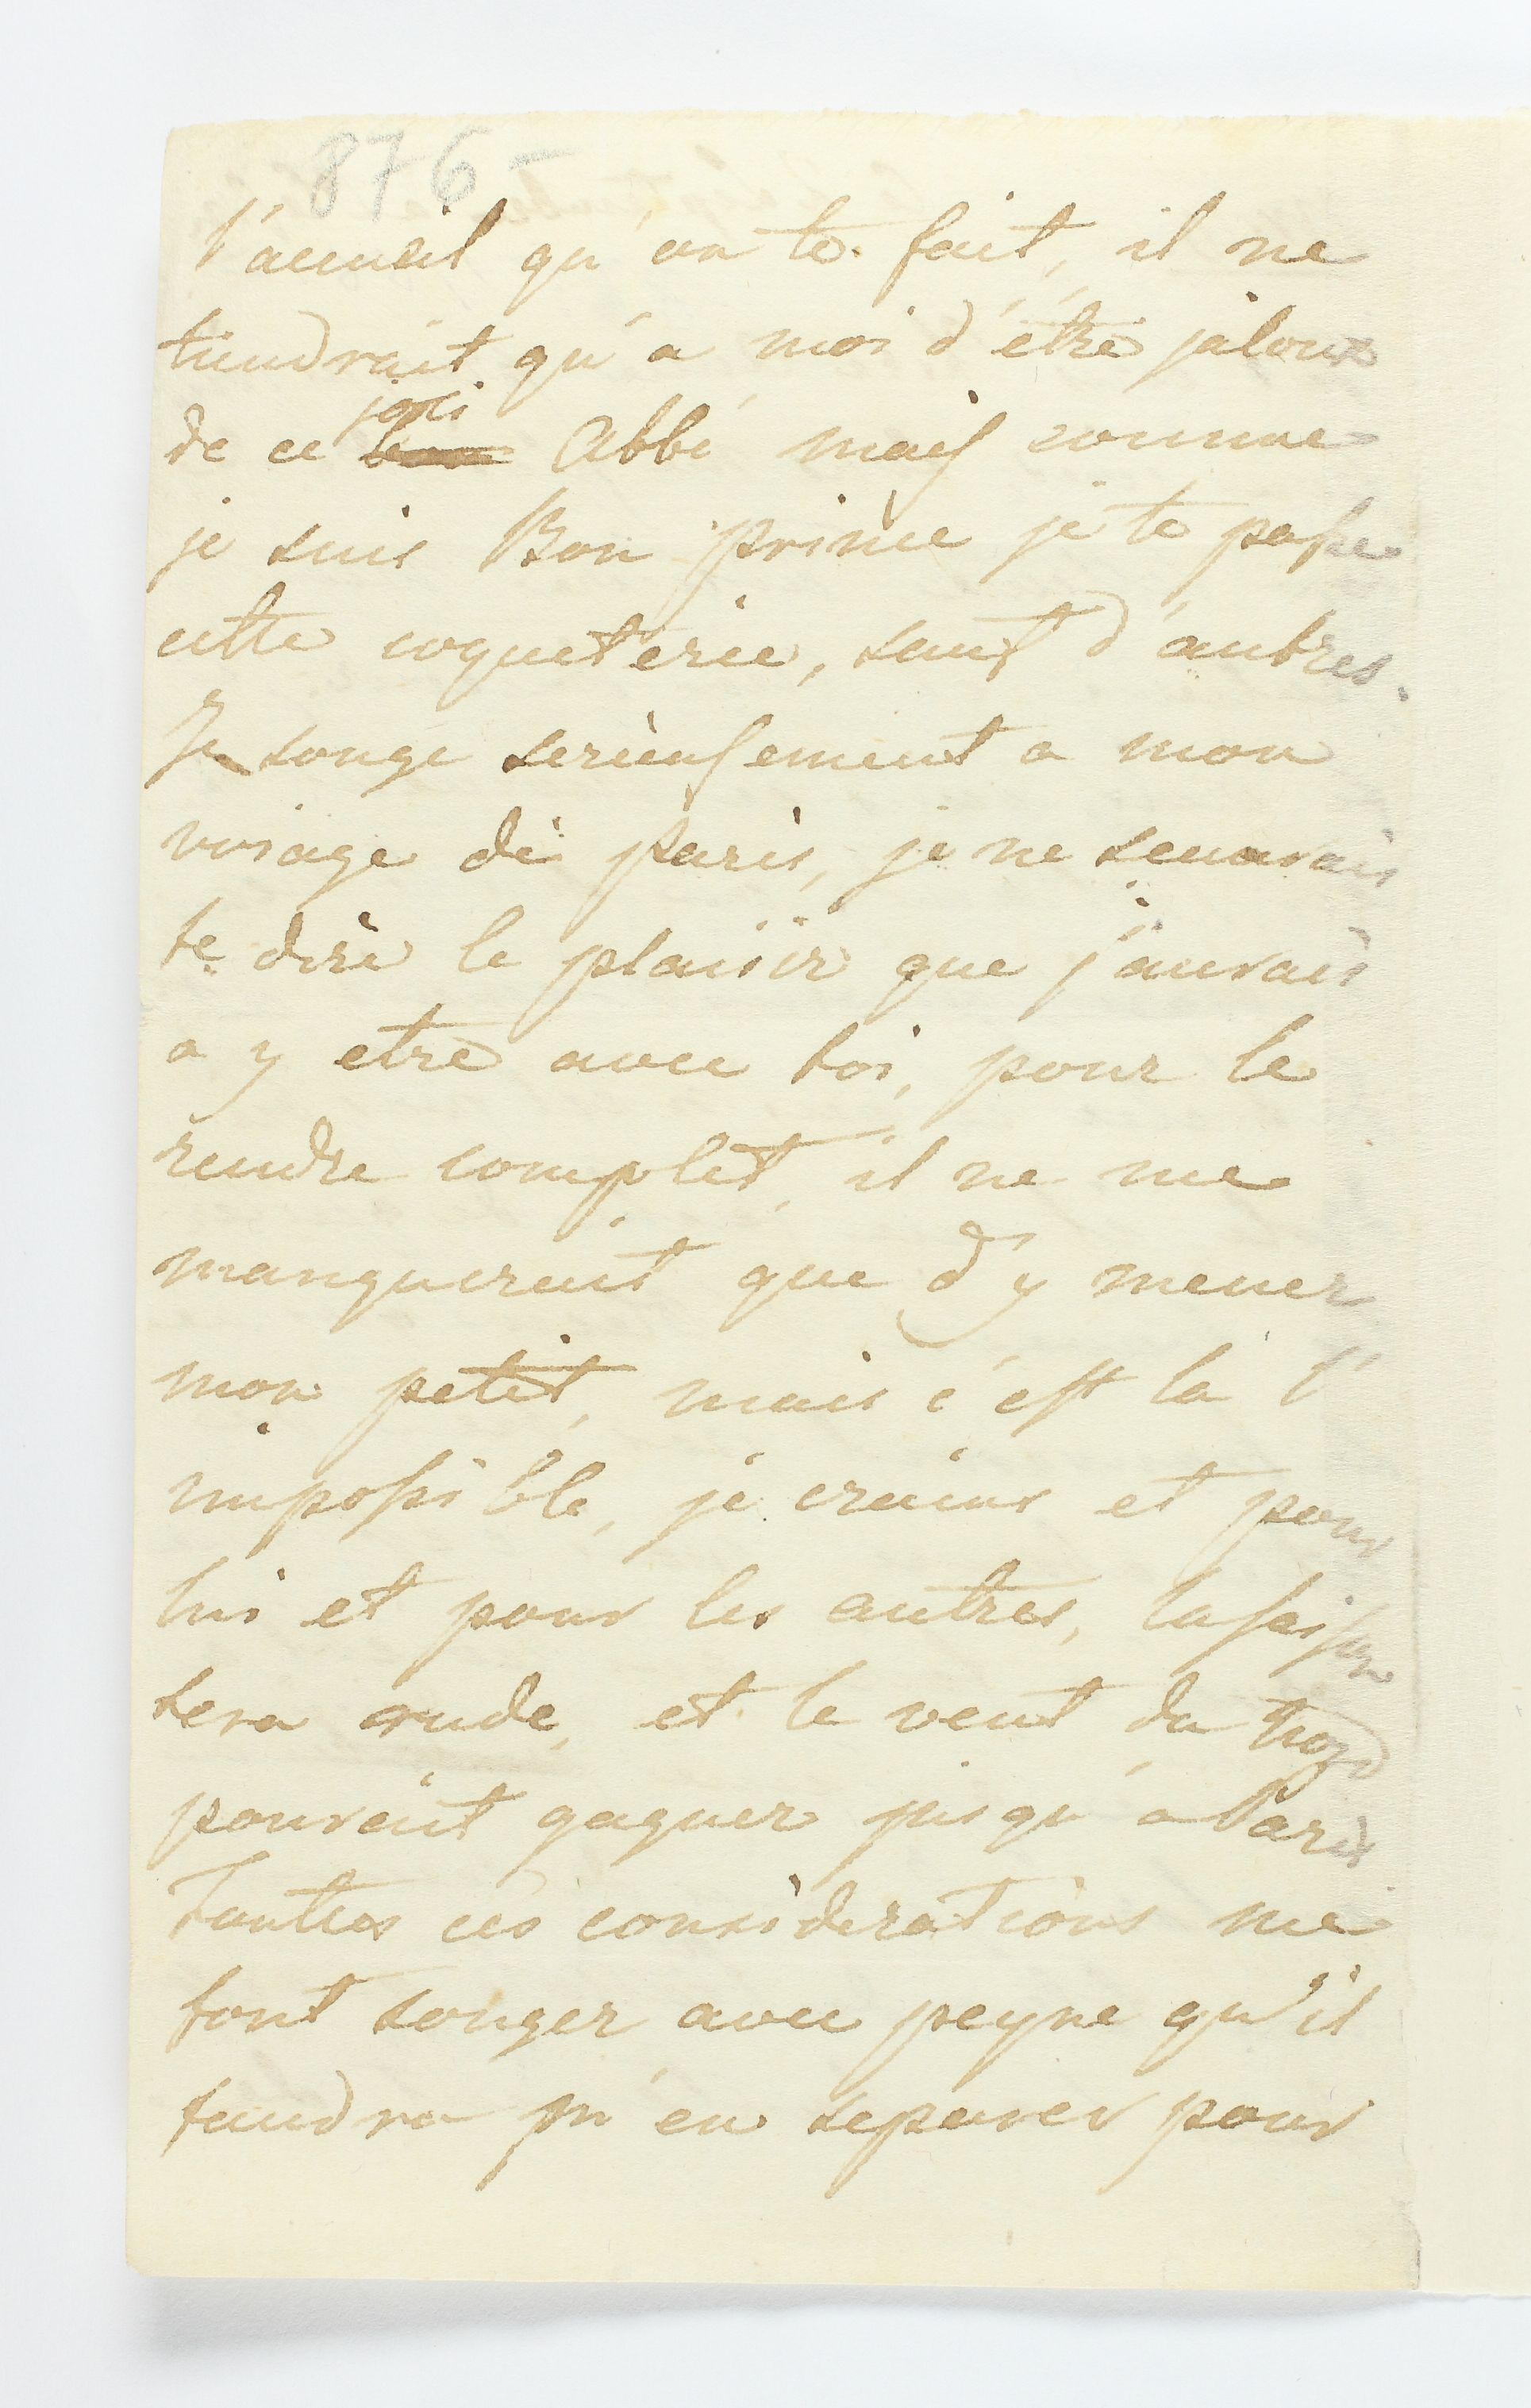 876-
l'acueil qu'on te fait, il ne
tiendrait qu'a moi d'étre jaloux
de ce joli Abbé mais comme
je suis Bon prince je te passe
cette coqueterie, sauf d'autres.
Je songe serieusement a mon
voiage de paris, je ne scaurais
te dire le plaisir que j'aurais
a y etre avec toi, pour le
rendre complet, il ne me
manquerait que d'y mener
mon petit, mais c'est la l'
impossible, je crains et pour
lui et pour les autres, la saison
sera rude, et le vent du Nord
pourait gagner jusqu'a Paris
Toutes ces considerations me
font songer avec peyne qu'il
faudra m'en separer pour